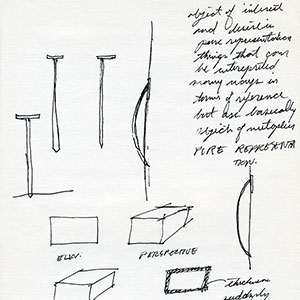 object of interest
and desire is
pure representation
things that can
be interpreted
many ways in
terms of reference
but are basically
objects of
PURE REPRESENTA
TION.
ELEV.
PERSPECTIVE
thickness
suddenly